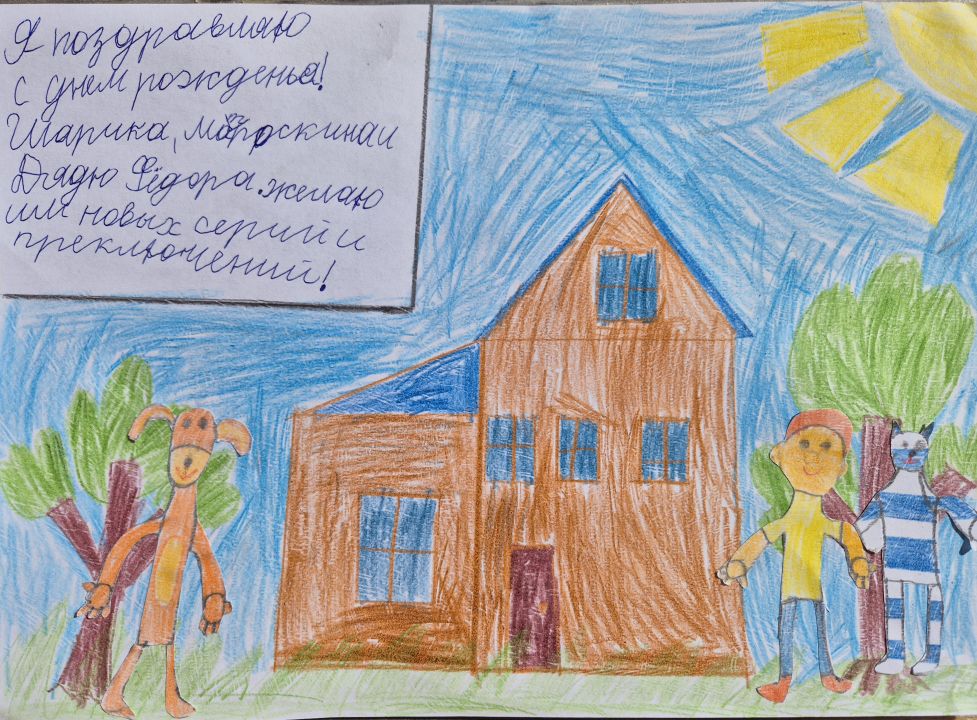 Я поздравляю
с днем рожденьа!
Шарика, Матроскина и
Дядю Фёдора. желаю
им новых серий и
преключений!